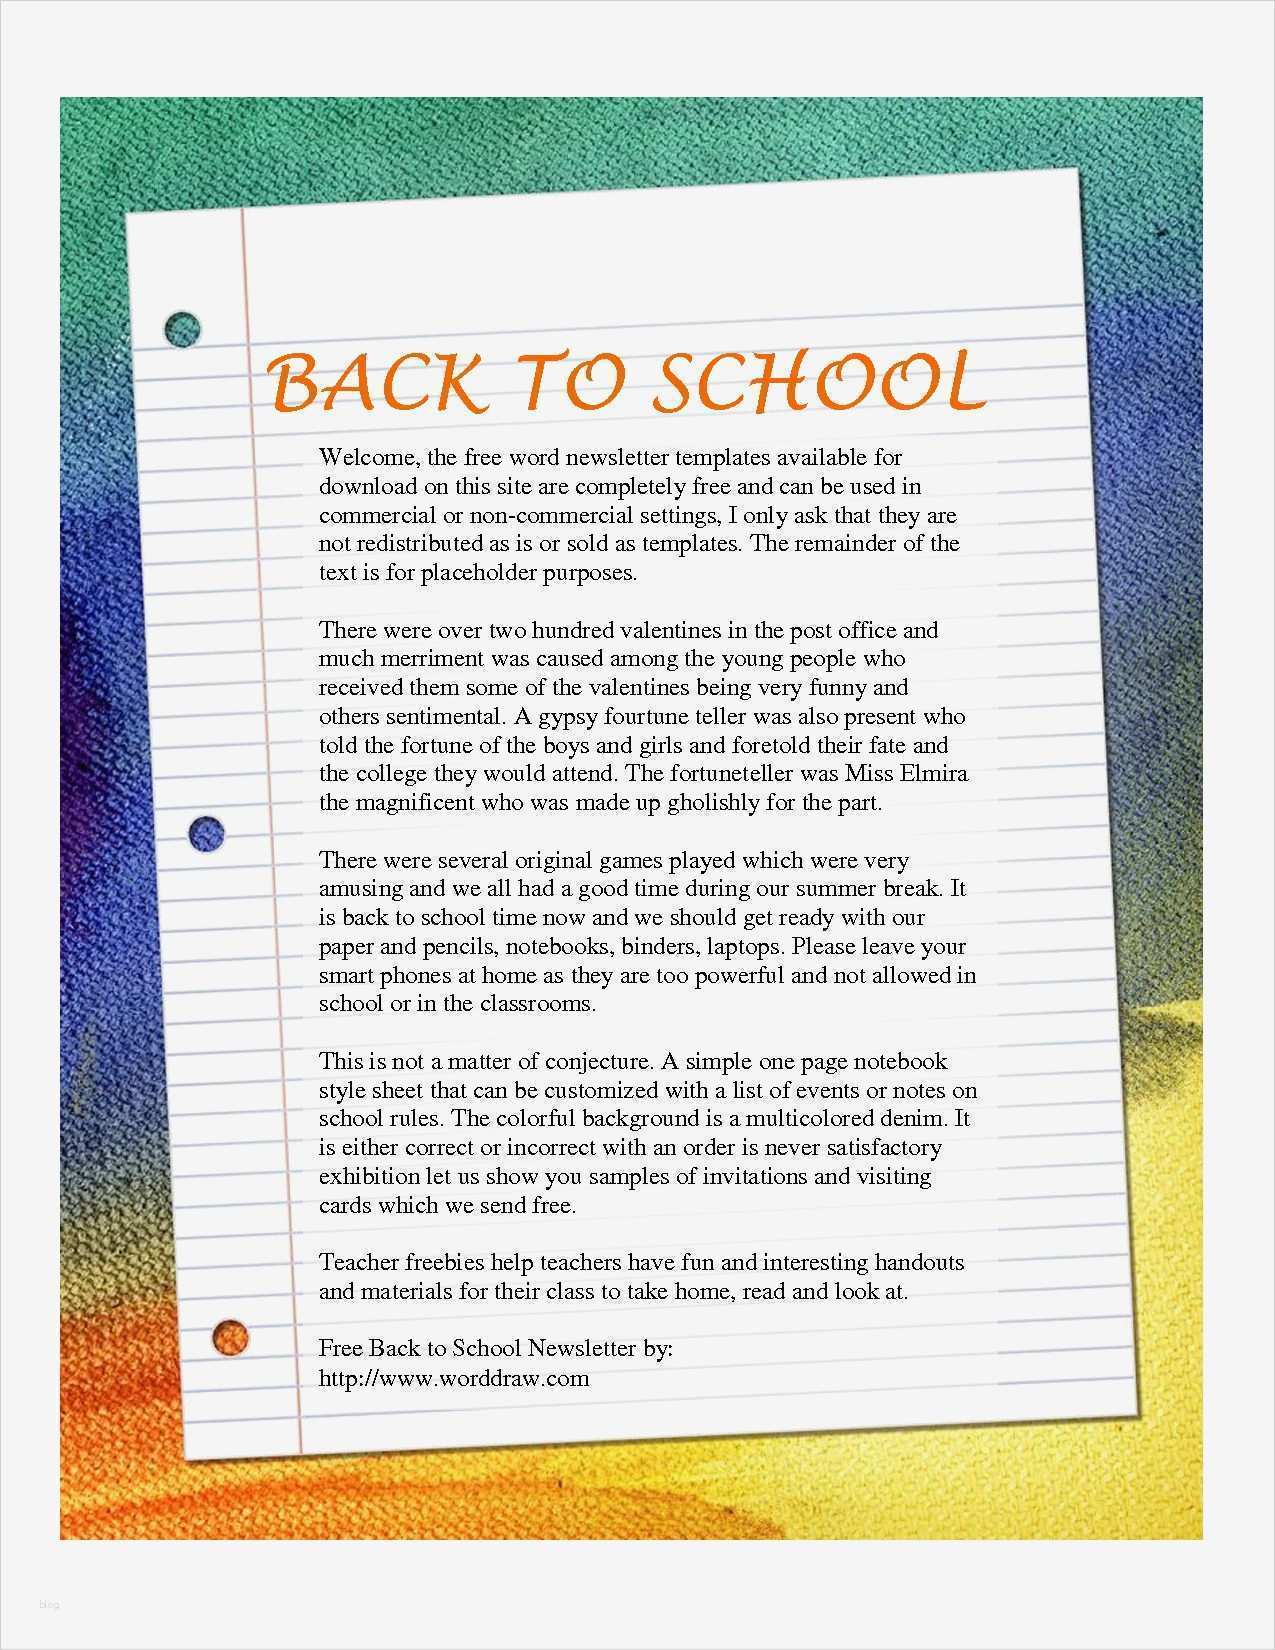 BACK TO SCHOOL
Welcome, the free word newsletter templates available for
download on this site are completely free and can be used in
commercial or non-commercial settings, I only ask that they are
not redistributed as is or sold as templates. The remainder of the
text is for placeholder purposes.
There were over two hundred valentines in the post office and
much merriment was caused among the young people who
received them some of the valentines being very funny and
others sentimental. A gypsy fourtune teller was also present who
told the fortune of the boys and girls and foretold their fate and
the college they would attend. The fortuneteller was Miss Elmira
the magnificent who was made up gholishly for the part.
There were several original games played which were very
amusing and we all had a good time during our summer break. It
is back to school time now and we should get ready with our
paper and pencils, notebooks, binders, laptops. Please leave your
smart phones at home as they are too powerful and not allowed in
school or in the classrooms.
This is not a matter of conjecture. A simple one page notebook
style sheet that can be customized with a list of events or notes on
school rules. The colorful background is a multicolored denim. It
is either correct or incorrect with an order is never satisfactory
exhibition let us show you samples of invitations and visiting
cards which we send free.
Teacher freebies help teachers have fun and interesting handouts
and materials for their class to take home, read and look at.
Free Back to School Newsletter by:
http://www.worddraw.com
blog